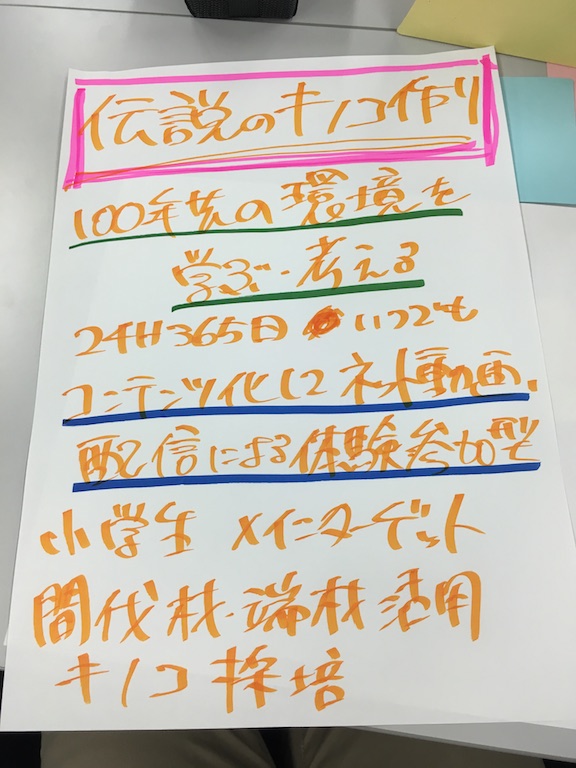 伝説のキノコ作り
100年先の環境を
学ぶ・考える
24H365日 いつでも
コンテンツ化して ネット動画、
配信による体験参加型
小学生 メインターゲット
間伐材・端材活用
キノコ採培